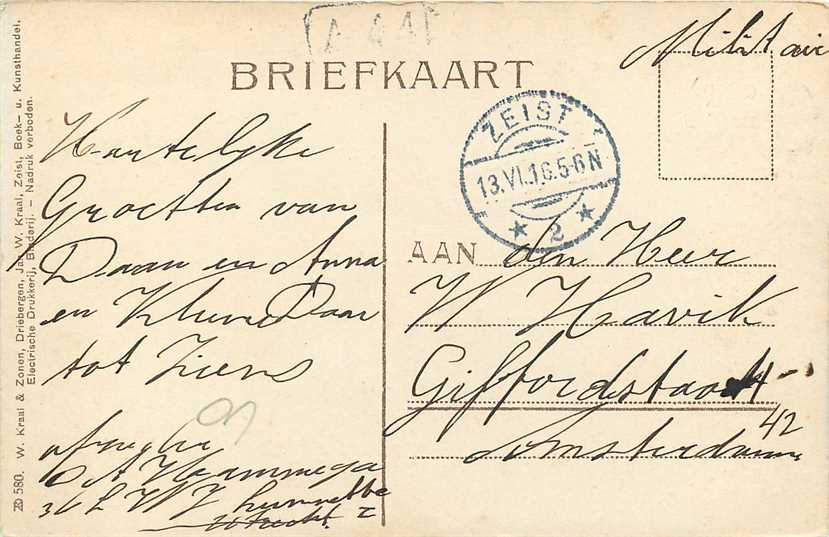 Militair
BRIEFKAART
ZEIST
13.VI.16.5-6N
2
Hartelijke
Groetten van
Daan en Anna
en Kleine Daan
tot Ziens
afzender
Utrecht
AAN den Heer
W Havik
Giffordstraat
42
Amsterdam
ZO 580. W. Kraal & Zonen, Driebergen, Jan W. Kraal, Zeist, Boek- u. Kunsthandel,
Electrische Drukkerij, Binderij. - Nadruk verboden.